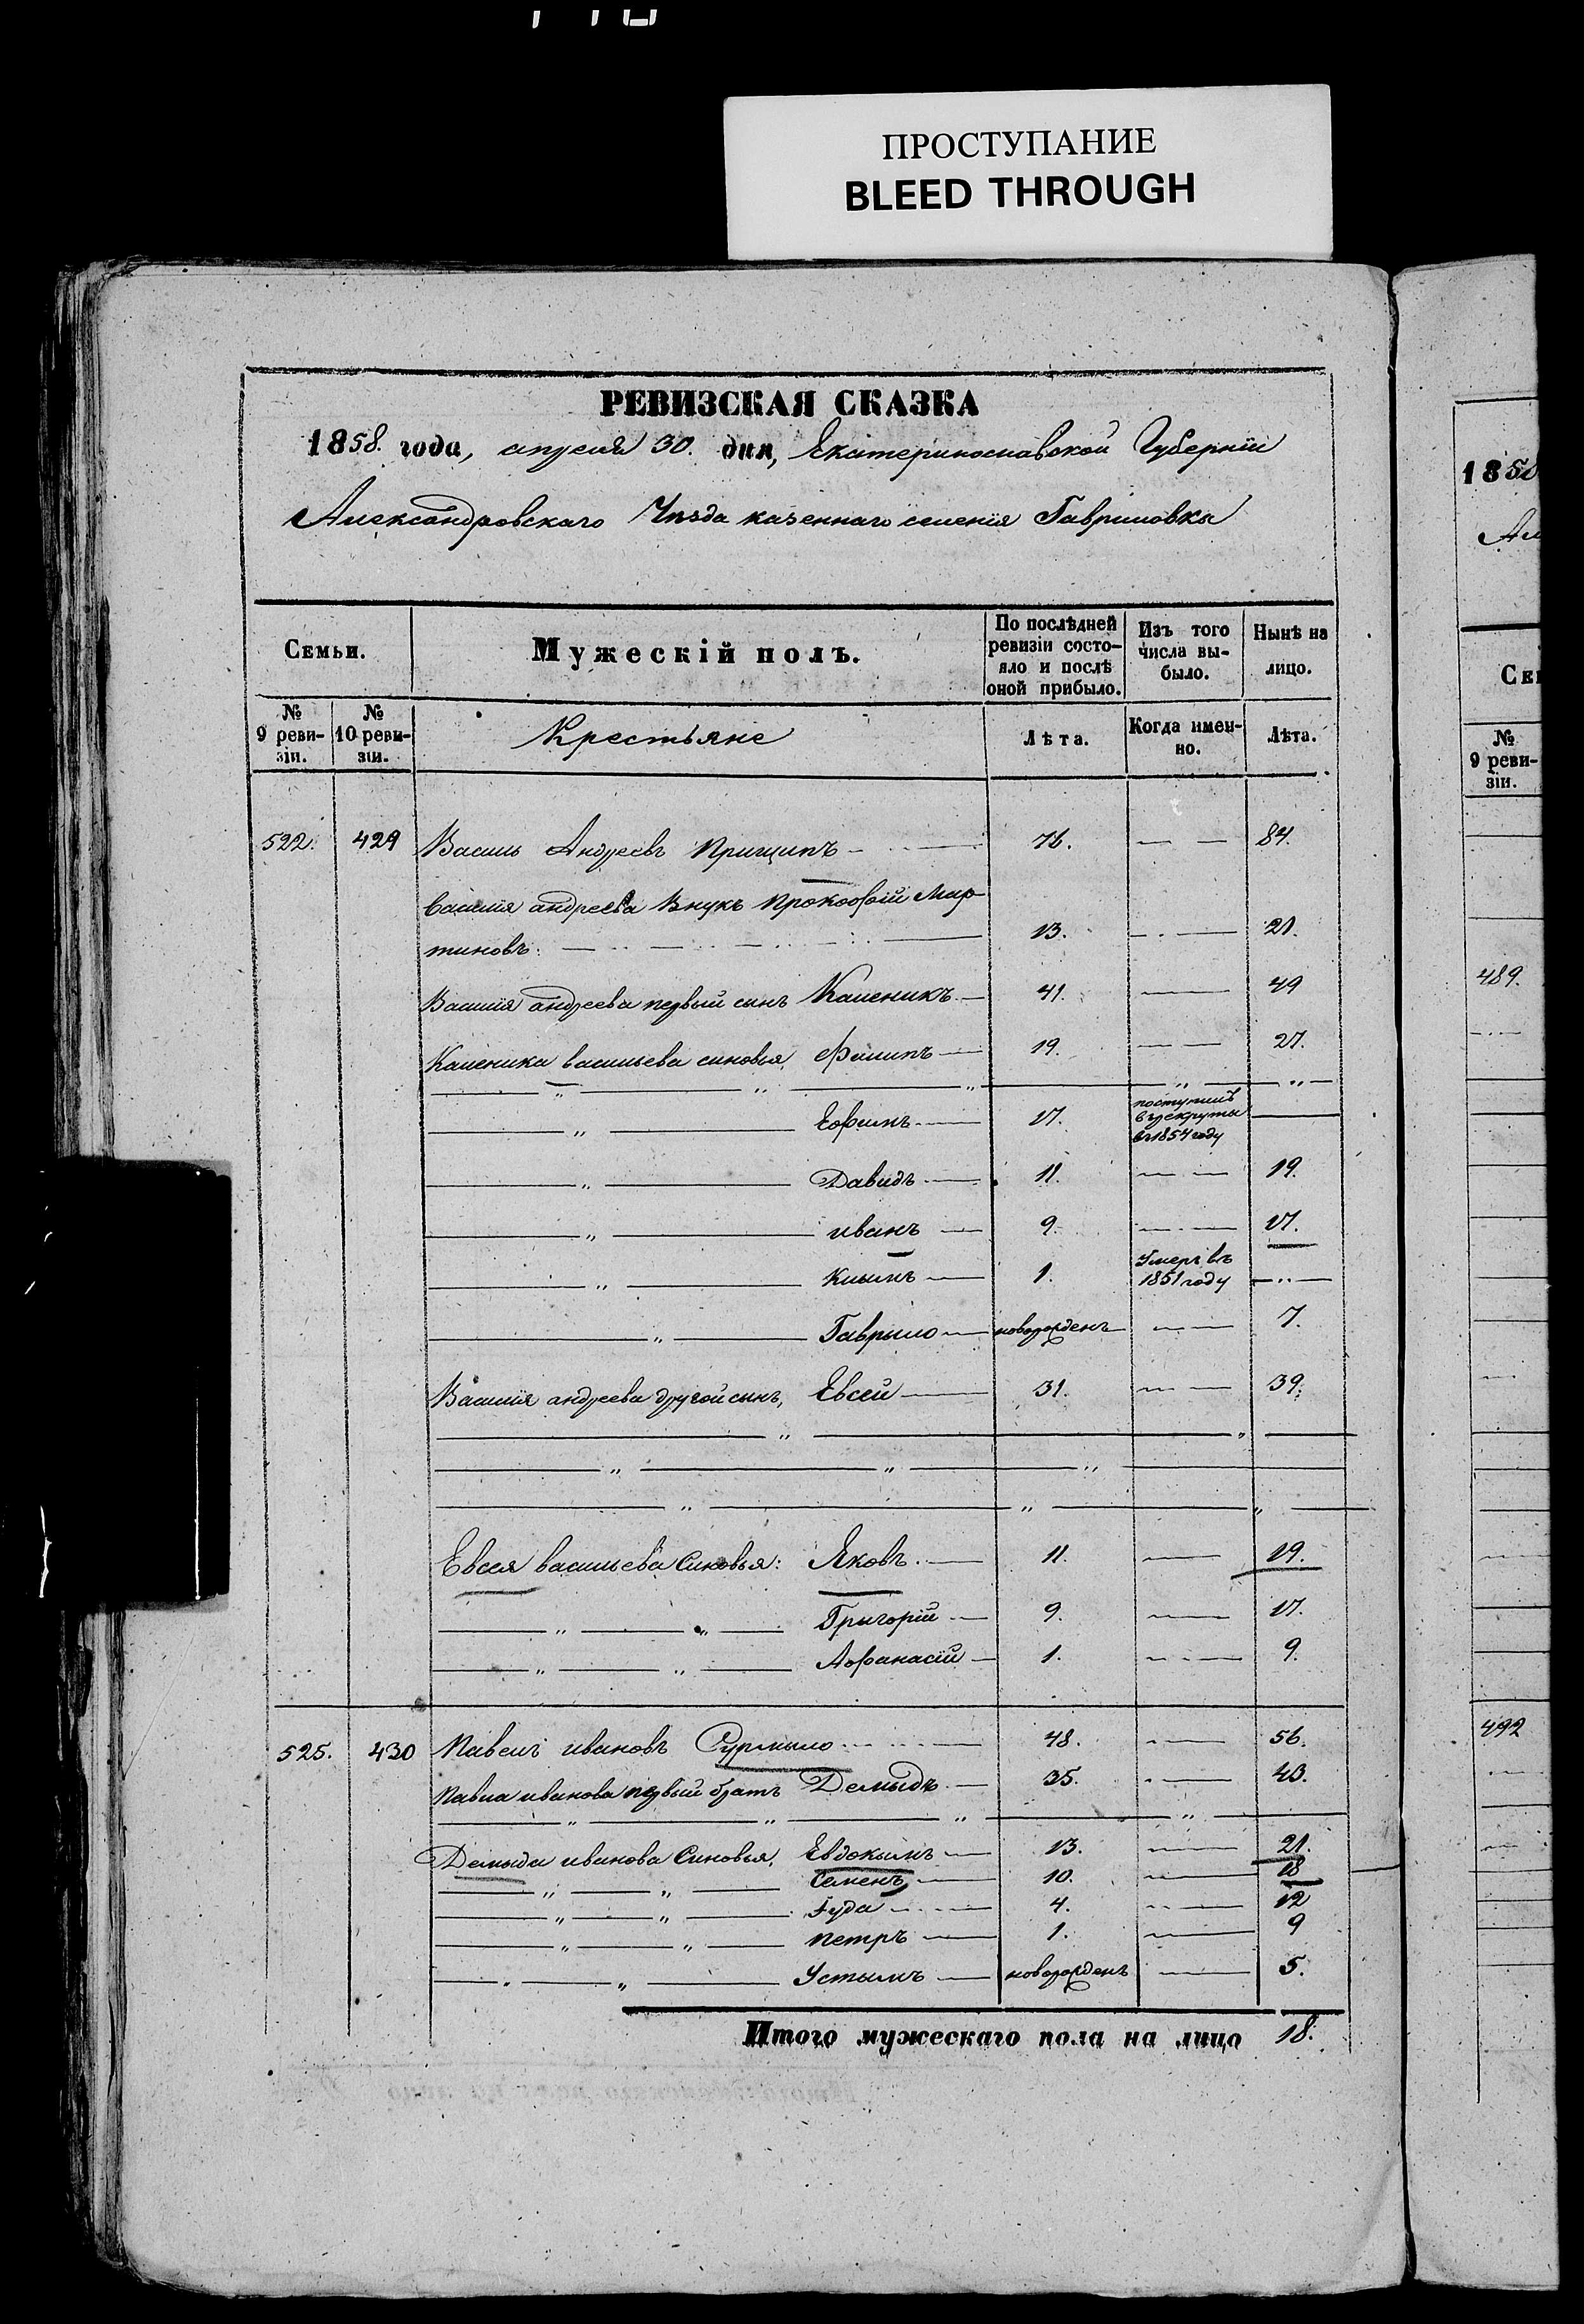 ПРОСТУПАНИЕ
BLEED THROUGH
РЕВИЗСКАЯ СКАЗКА
1858. года, апреля 30. дня, Екатеринославской Губерніи
Александровскаго Уѣзда казеннаго селенія Гавриловка
Семьи. Мужескій полъ. По послѣдней ревизіи состо- яло и послѣ оной прибыло. Изъ того числа вы- было. Нынѣ на лицо.
№ 9 реви- зіи. № 10 реви- зіи. Крестьяне Лѣта. Когда имен- но. Лѣта.
522. 429 Василь Андреевъ Прищипъ 76. 84.
Василія андреева Внукъ Прокофій Мар
тиновъ: 13. 21.
Василія андреева первый сынъ Каленикъ 41. 49
Каленика васильева синовья, Филипъ 19. 27.
" Ефимъ 17. поступилъ в рекруты в 1854 году
" Давидъ 11. 19.
" иванъ 9. 17.
" Клымъ 1. Умеръ въ 1851 году
" Гаврыло новорожденъ 7.
Василія андреева другой сынъ, Евсей 31. 39.
Евсея васильева Синовья: Яковъ. 11. 19.
" " Григорій 9. 17.
" " Афанасій 1. 9.
525. 430 Павелъ ивановъ Сурмыло 48. 56.
Павла иванова первый братъ Демыдъ 35. 43.
Демыда иванова Синовья, Евдокымъ 13. 21.
" " Семенъ 10. 18
" " Іуда 4. 12
" " Петръ 1. 9
" " Устымъ новорожденъ 5.
Итого мужескаго пола на лицо 18.
1858
Ал
Се
№
9 реви-
зіи.
489.
492